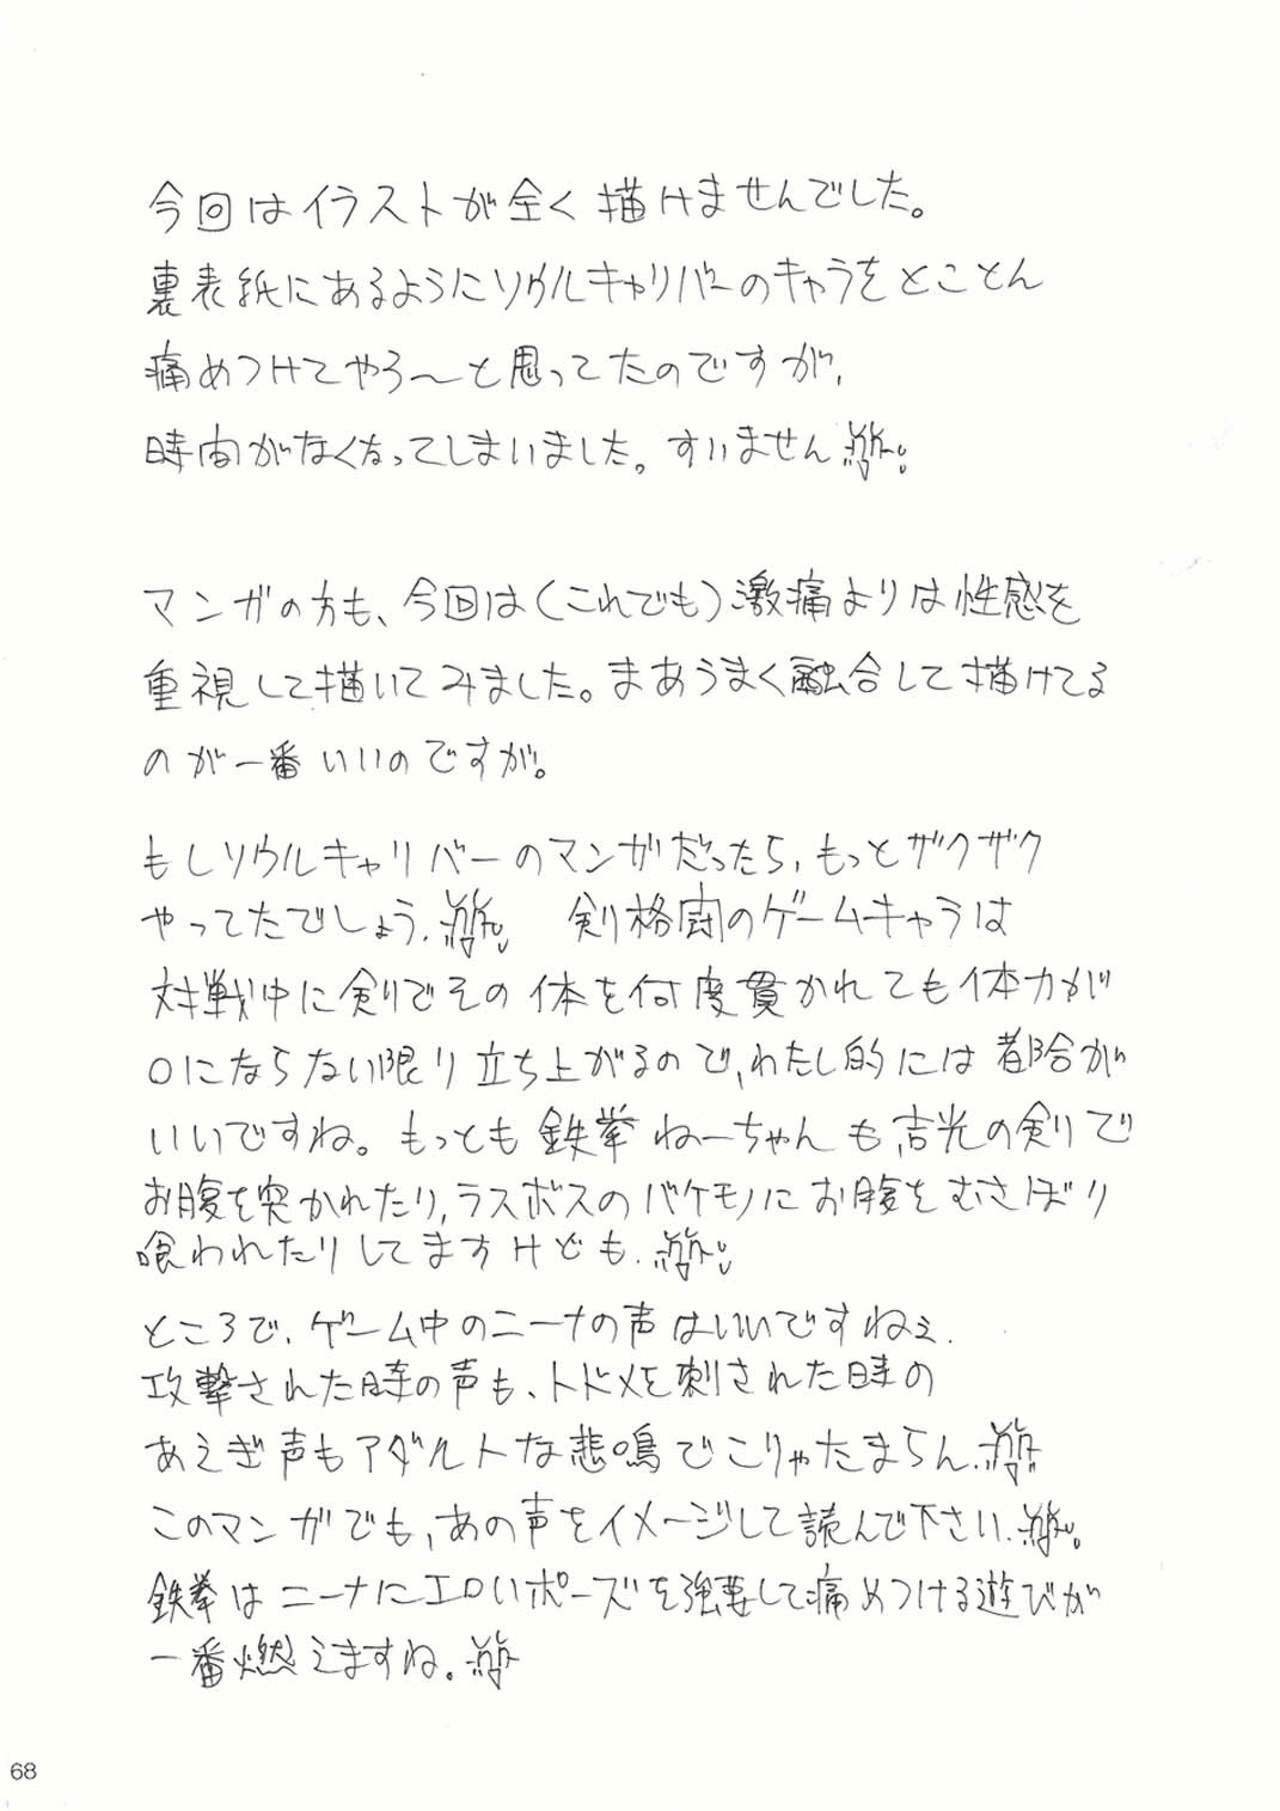 今回はイラストが全く描けませんでした。
裏表紙にあるようにソウルキャリバーのキャラをとことん
痛めつけてやろ〜と思ってたのですが、
時間がなくなってしまいました。すいません
マンガの方も、今回は(これでも)激痛よりは性感を
重視して描いてみました。まあうまく融合して描けてる
のが一番いいのですが。
もしソウルキャリバーのマンガだったら、もっとザクザク
やってたでしょう. 剣格闘のゲームキャラは
対戦中に剣でその体を何度貫かれても体力が
0にならない限り立ち上がるので、わたし的には都合が
いいですね。もっとも鉄拳ねーちゃんも吉光の剣で
お腹を突かれたり、ラスボスのバケモノにお腹をむさぼり
喰われたりしてますけども.
ところで、ゲーム中のニーナの声はいいですねぇ.
攻撃された時の声も、トドメを刺された時の
あえぎ声もアダルトな悲鳴でこりゃたまらん.
このマンガでも、あの声をイメージして読んで下さい.
鉄拳はニーナにエロいポーズを強要して痛めつける遊びが
一番燃えますね.
68